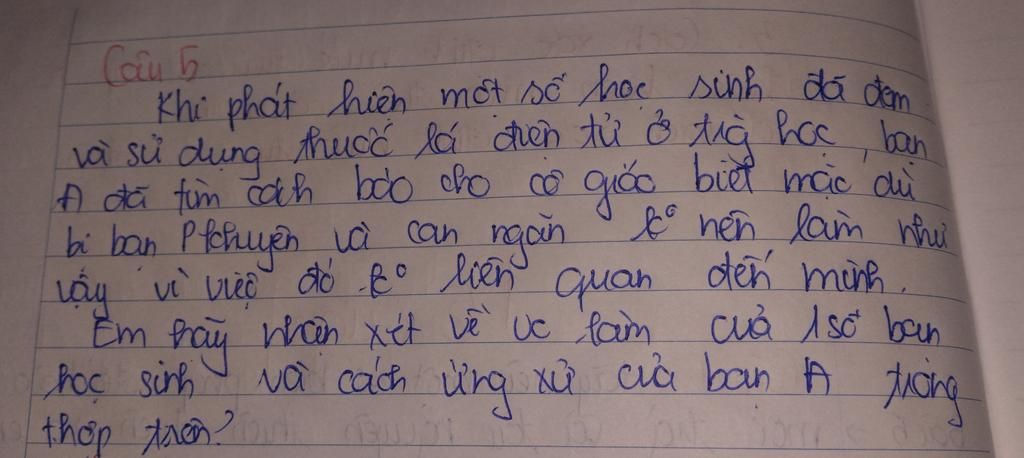 Câu 5
Khi phát hiện một số học sinh đã đem
và sử dụng thuốc lá điện tử ở trg học, bạn
A đã tìm cách báo cho cô giáo biết mặc dù
bị bạn P khuyên và can ngăn k° nên làm như
vậy vì việc đó k° liên quan đến mình.
Em hãy nhận xét về vc làm của 1 số bạn
học sinh và cách ứng xử của bạn A trong
thợp trên?